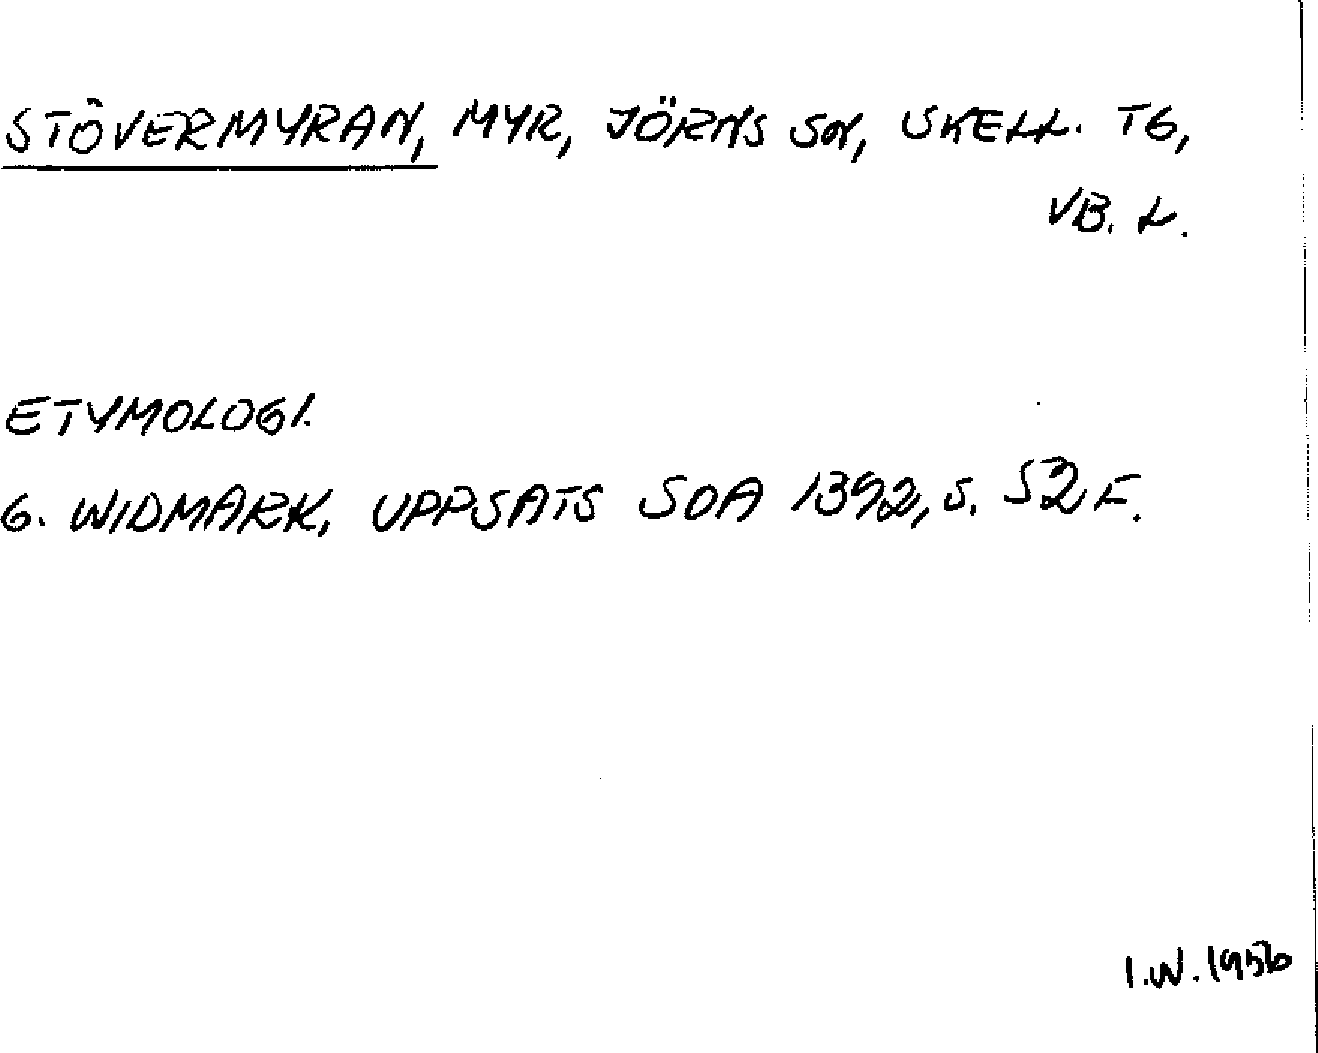 STÖVERMYRAN, MYR, JÖRNS SN, SKELL. TG,
VB. L.
ETYMOLOGI.
G. WIDMARK, UPPSATS SOA 1392, S. 52 F.
I.W. 1956